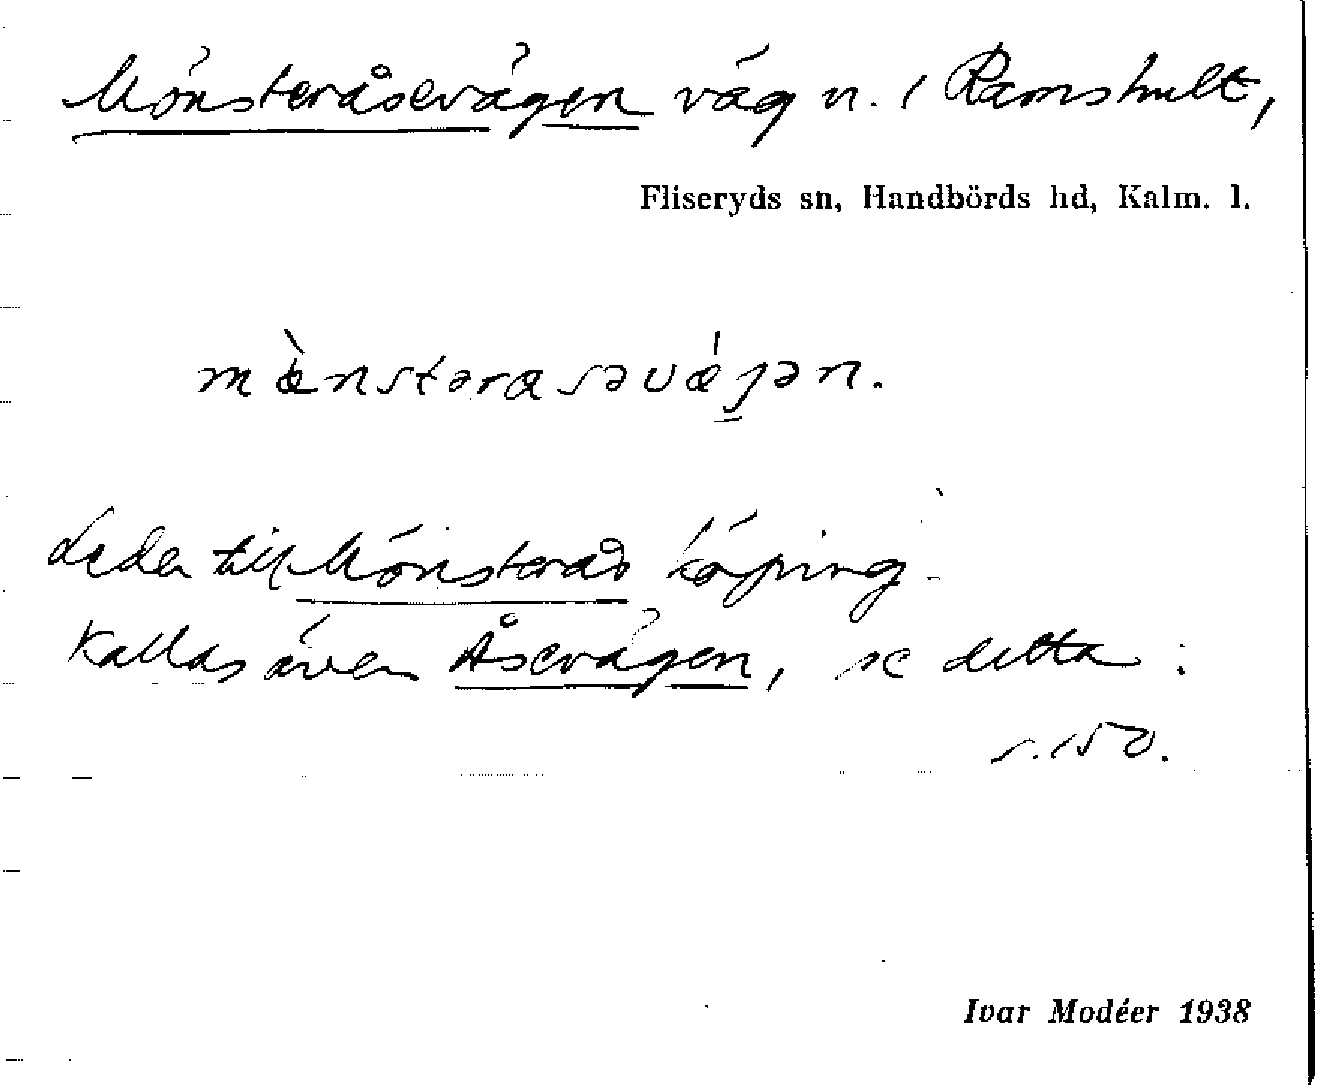 Mönsteråsevägen väg n. i Ramshult,
Fliseryds sn, Handbörds hd, Kalm. l.
mæ̀nstərɑsəvǽjən.
Leder till Mönsterås köping.
Kallas även Åsevägen, se detta.
s. 150.
Ivar Modéer 1938